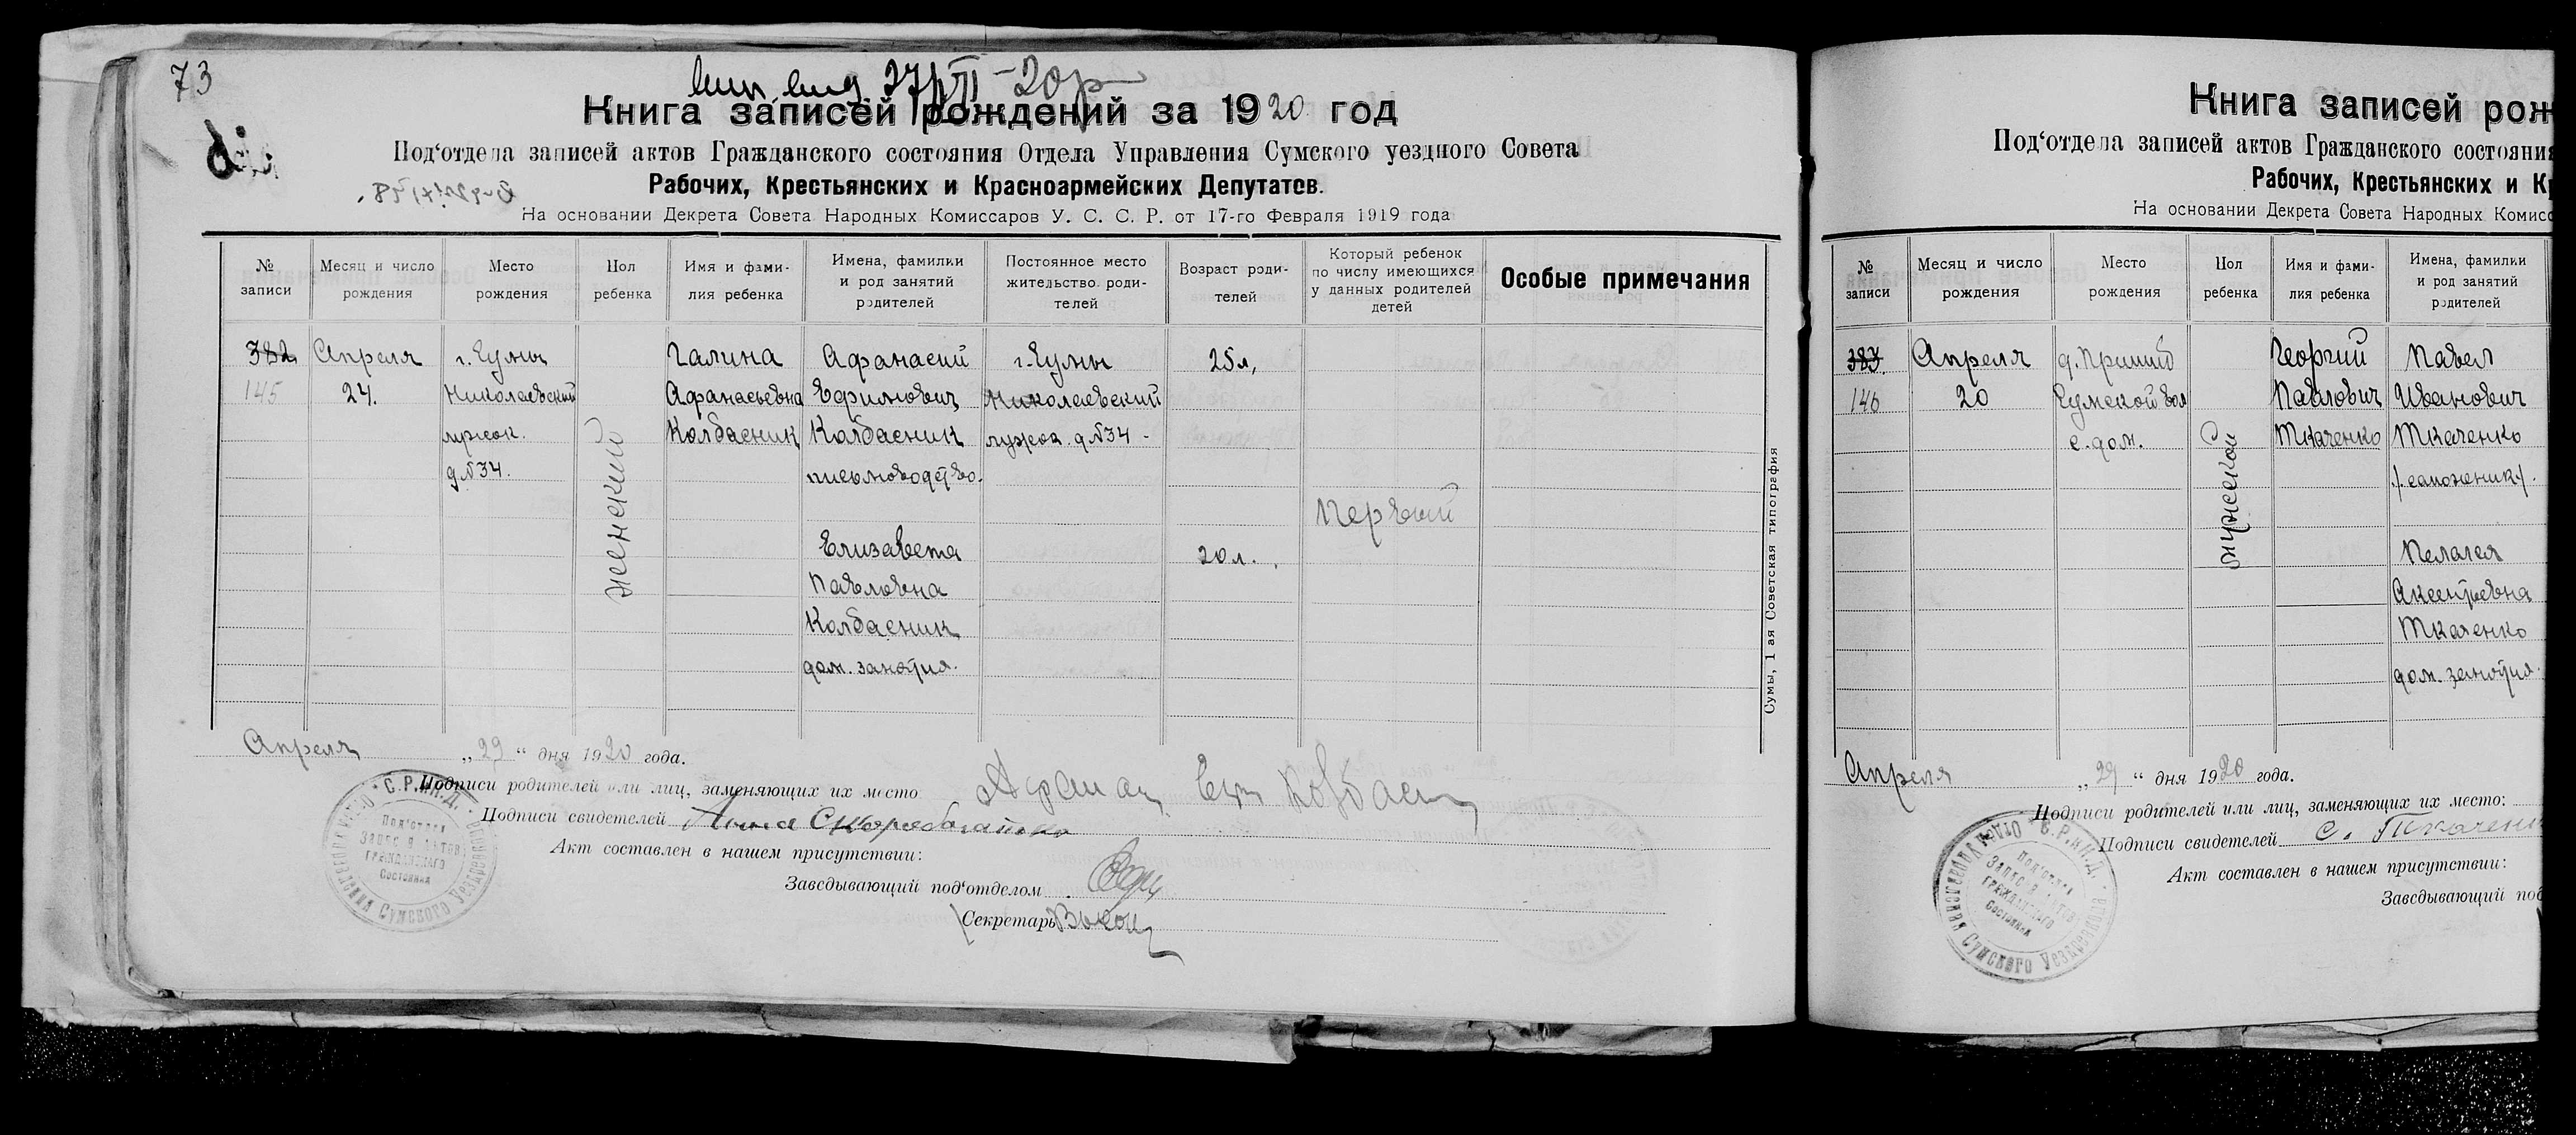 73
Книга записей рождений за 1920 год
Под‘отдела записей актов Гражданского состояния Отдела Управления Сумского уездного Совета
Рабочих, Крестьянских и Красноармейских Депутатов.
На основании Декрета Совета Народных Комиссаров У. С. С. Р. от 17-го Февраля 1919 года
№ записи
Месяц и число рождения
Место рождения
Пол ребенка
Имя и фами-
лия ребенка
Имена, фамилии
и род занятий
родителей
Постоянное место
жительство роди-
телей
Возраст роди-
телей
Который ребенок
по числу имеющихся
у данных родителей
детей
Особые примечания
382
145
Апреля
24.
г. Сумы
Николаевский
лужок.
д. №34.
женский
Галина
Афанасьевна
Колбасник
Афанасий
Ефимович
Колбасник
письмоводство.
Елизавета
Павловна
Колбасник
дом. занятия.
г. Сумы
Николаевский
лужок д. №34 -
25 л,
20 л.
Первый
Сумы, 1 ая Советская типография
Апреля „29“ дня 1920 года.
Подписи родителей или лиц, заменяющих их место
Подписи свидетелей Анна
Акт составлен в нашем присутствии:
Заведывающий под‘отделом
Секретарь
С.Р.и К.Д.
Под'отдел
Записи Актов
Гражданского
Состояния
Книга записей рож
Под‘отдела записей актов Гражданского состояния
Рабочих, Крестьянских и К
На основании Декрета Совета Народных Комисс
№ записи
Месяц и число рождения
Место рождения
Пол ребенка
Имя и фами-
лия ребенка
Имена, фамилии
и род занятий
родителей
383
146
Апреля
20
Сумской вол
с. дом.
мужской
Георгий
Павлович
Ткаченко
Павел
Иванович
Ткаченко
/сапожник/.
Пелагея
Ткаченко
дом. занятия.
Апреля „29“ дня 1920 года.
Подписи родителей или лиц, заменяющих их место:
Подписи свидетелей С. Ткачен
Акт составлен в нашем присутствии:
Заведывающий под
С.Р.и К.Д.
Под'отдел
Записи Актов
Гражданского
Состояния